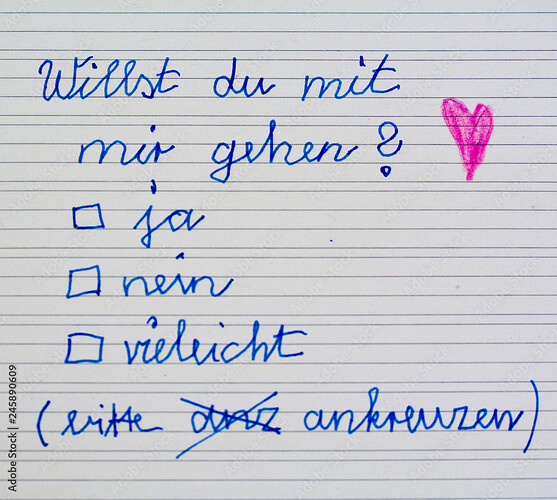 Willst du mit
mir gehen?
ja
nein
vieleicht
(bitte anz ankreuzen)
Adobe Stock | #245890609